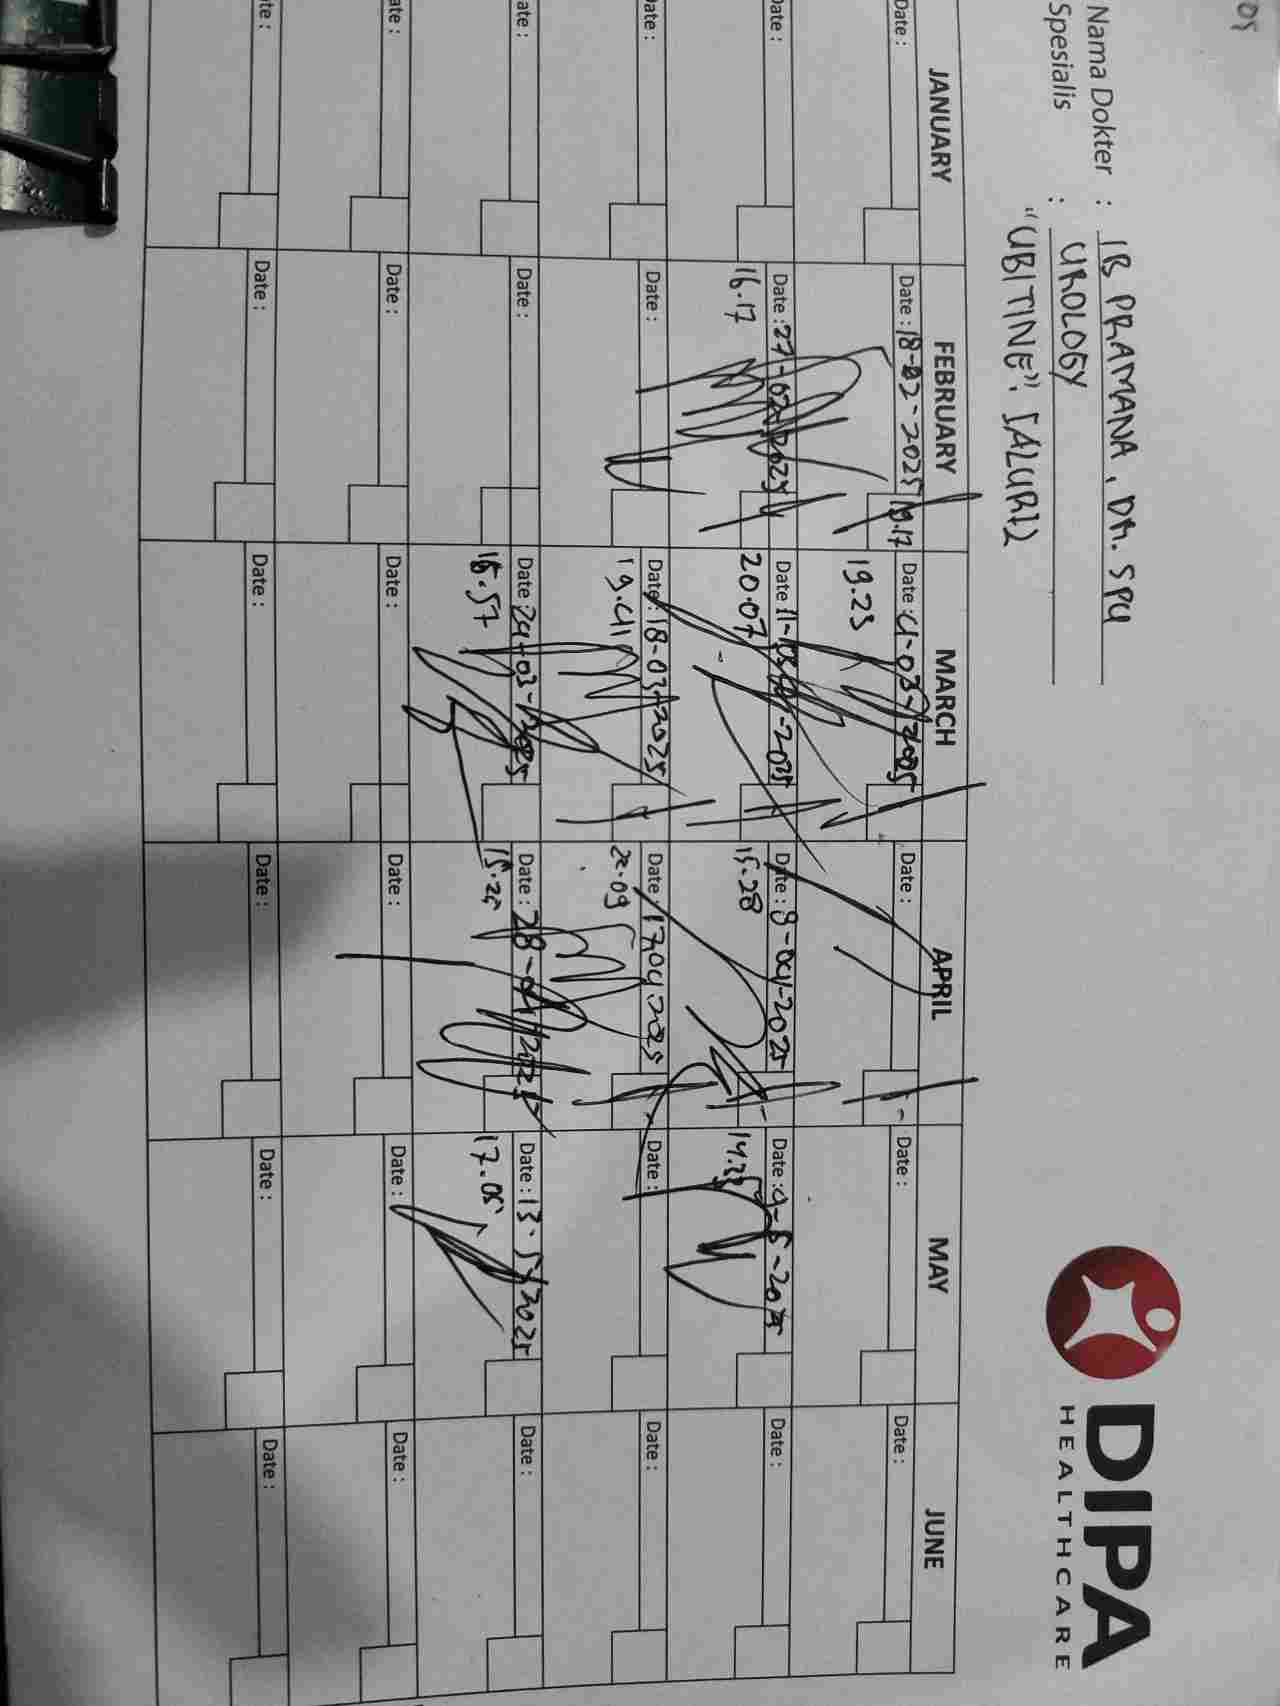 05
Nama Dokter : IB PRAMANA, DR. SPU
Spesialis : UROLOGY
DIPA
HEALTHCARE
JANUARY FEBRUARY MARCH APRIL MAY JUNE
Date : Date : 18-02-2025 Date : 4-03-2025 Date : Date : Date :
19.17 19.23
Date : Date : 27-02-2025 Date : 11-03-2025 Date : 9-04-2025 Date : 9-5-2025 Date :
16.17 20.07 15.28 14.33
Date : Date : Date : 18-03-2025 Date : 17.04.2025 Date : Date :
19.41
ate : Date : Date : 24-03-2025 Date : 28-04-2025 Date : 13.5.2025 Date :
17.05
ate : Date : Date : Date : Date : Date :
te : Date : Date : Date : Date : Date :